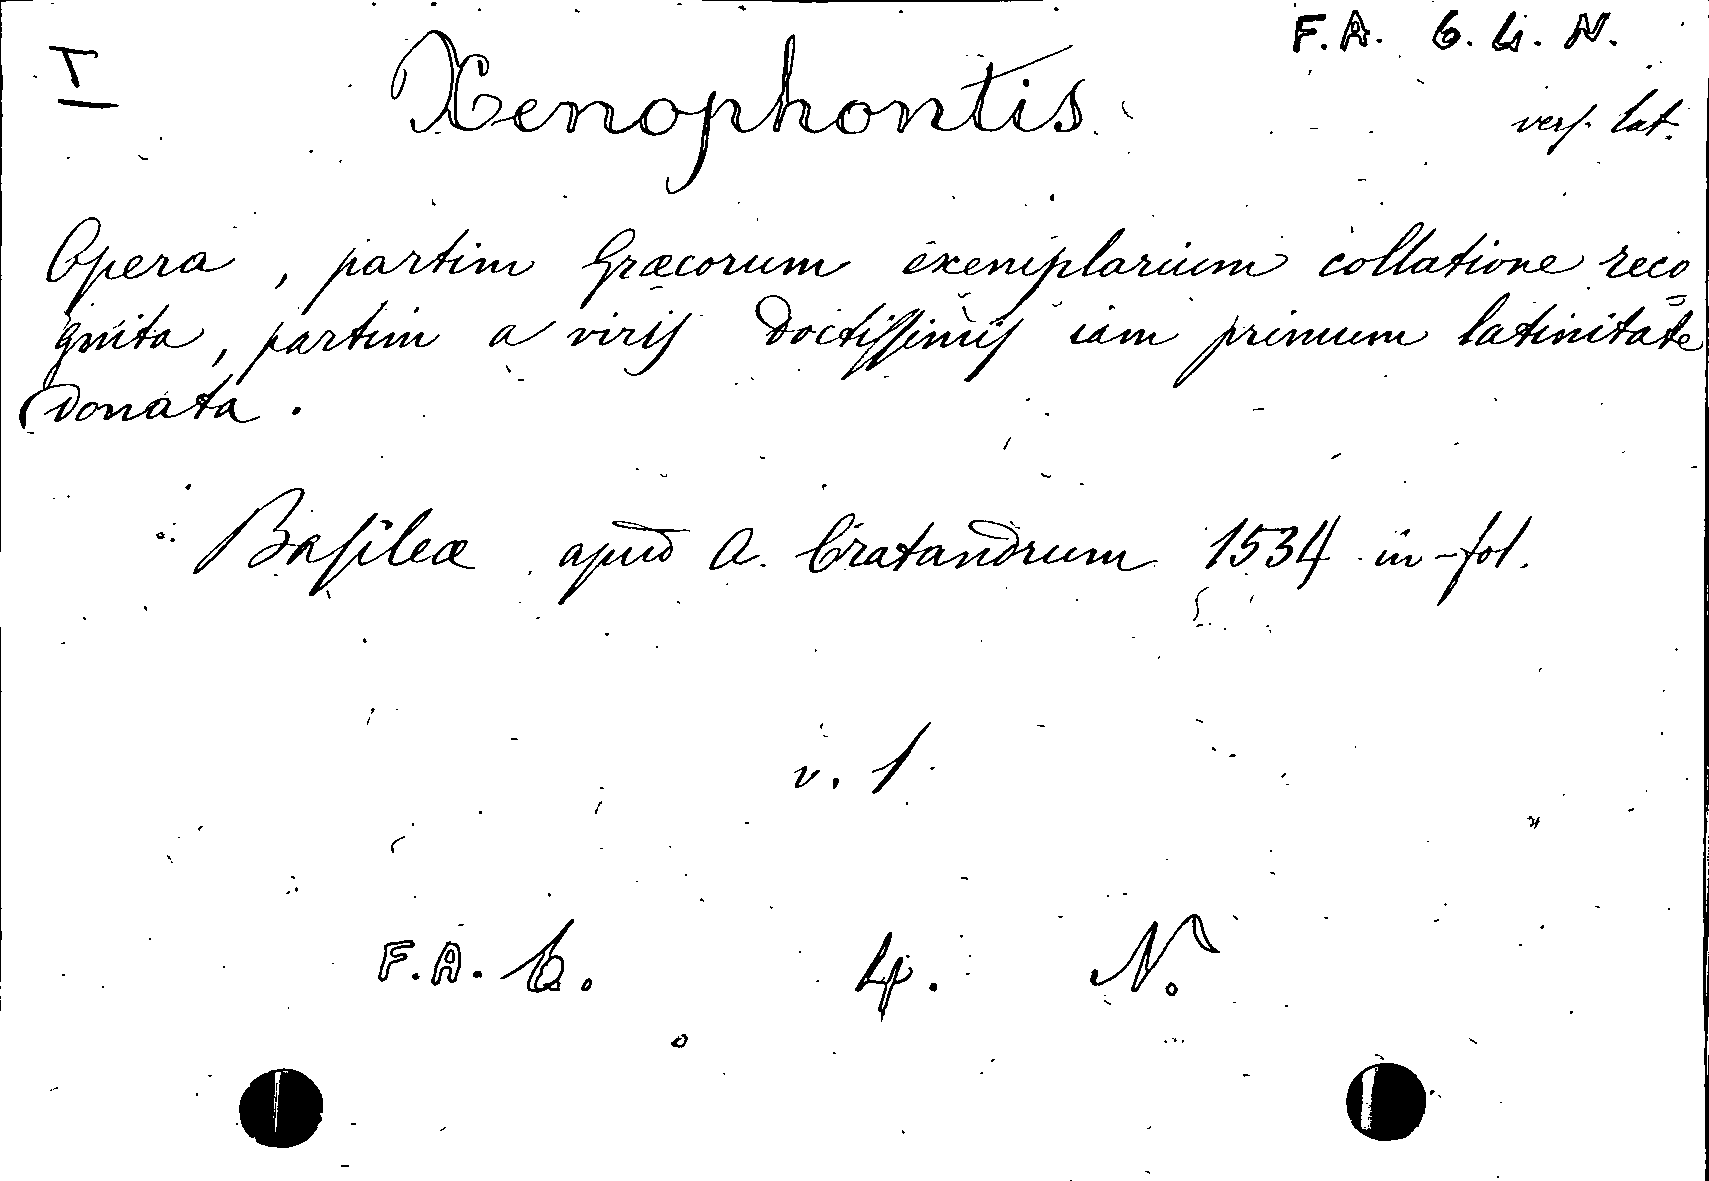 I
F. A. 6. 4. N.
Xenophontis
vers. lat.
Opera, partim Græcorum exemplarium collatione reco=
gnita, partim a viris doctissimis iam primum latinitate
donata.
Basileæ apud A. Cratandrum 1534 in-fol.
v. 1
F. A. 6. 4. N.